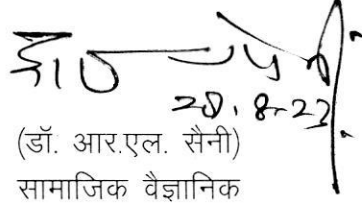 20.8.23
(डॉ. आर.एल. सैनी)
सामाजिक वैज्ञानिक